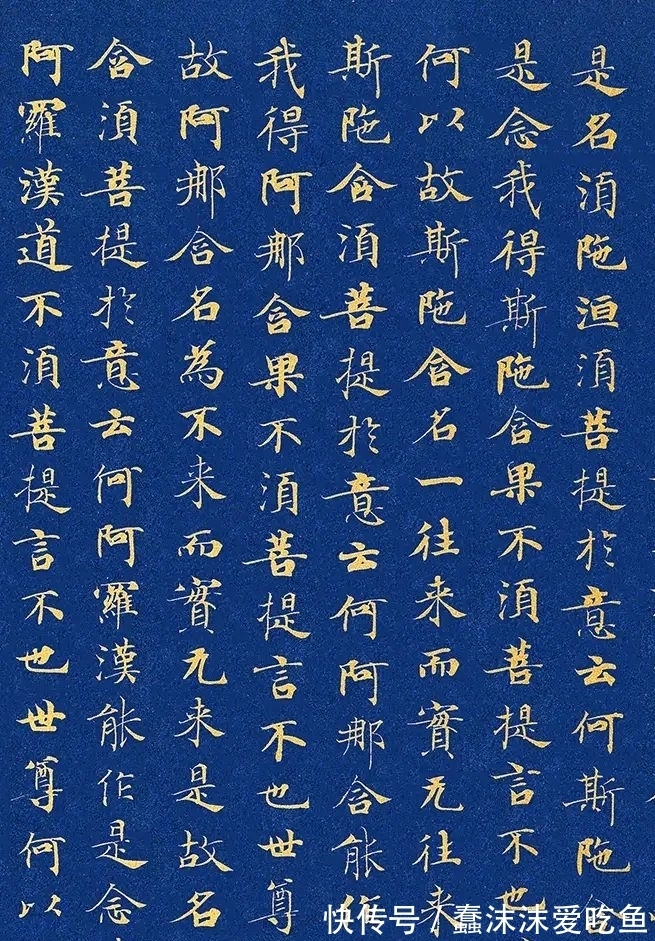 是名湏陁洹湏菩提扵意云何斯陁含
是念我得斯陁含果不湏菩提言不也
何以故斯陁含名一往来而實无往来
斯陁含湏菩提扵意云何阿那含能作
我得阿那含果不湏菩提言不也世尊
故阿那含名為不来而實无来是故名
含湏菩提扵意云何阿羅漢能作是念
阿羅漢道不湏菩提言不也世尊何以
快传号/蠢沫沫爱吃鱼